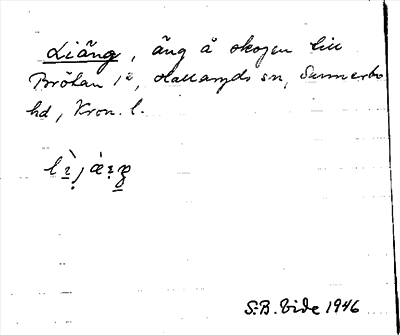 Liäng, äng å skogen till
Brötan 1², Hallaryds sn, Sunnerbo
hd, Kron. l.
S.B. Vide 1946